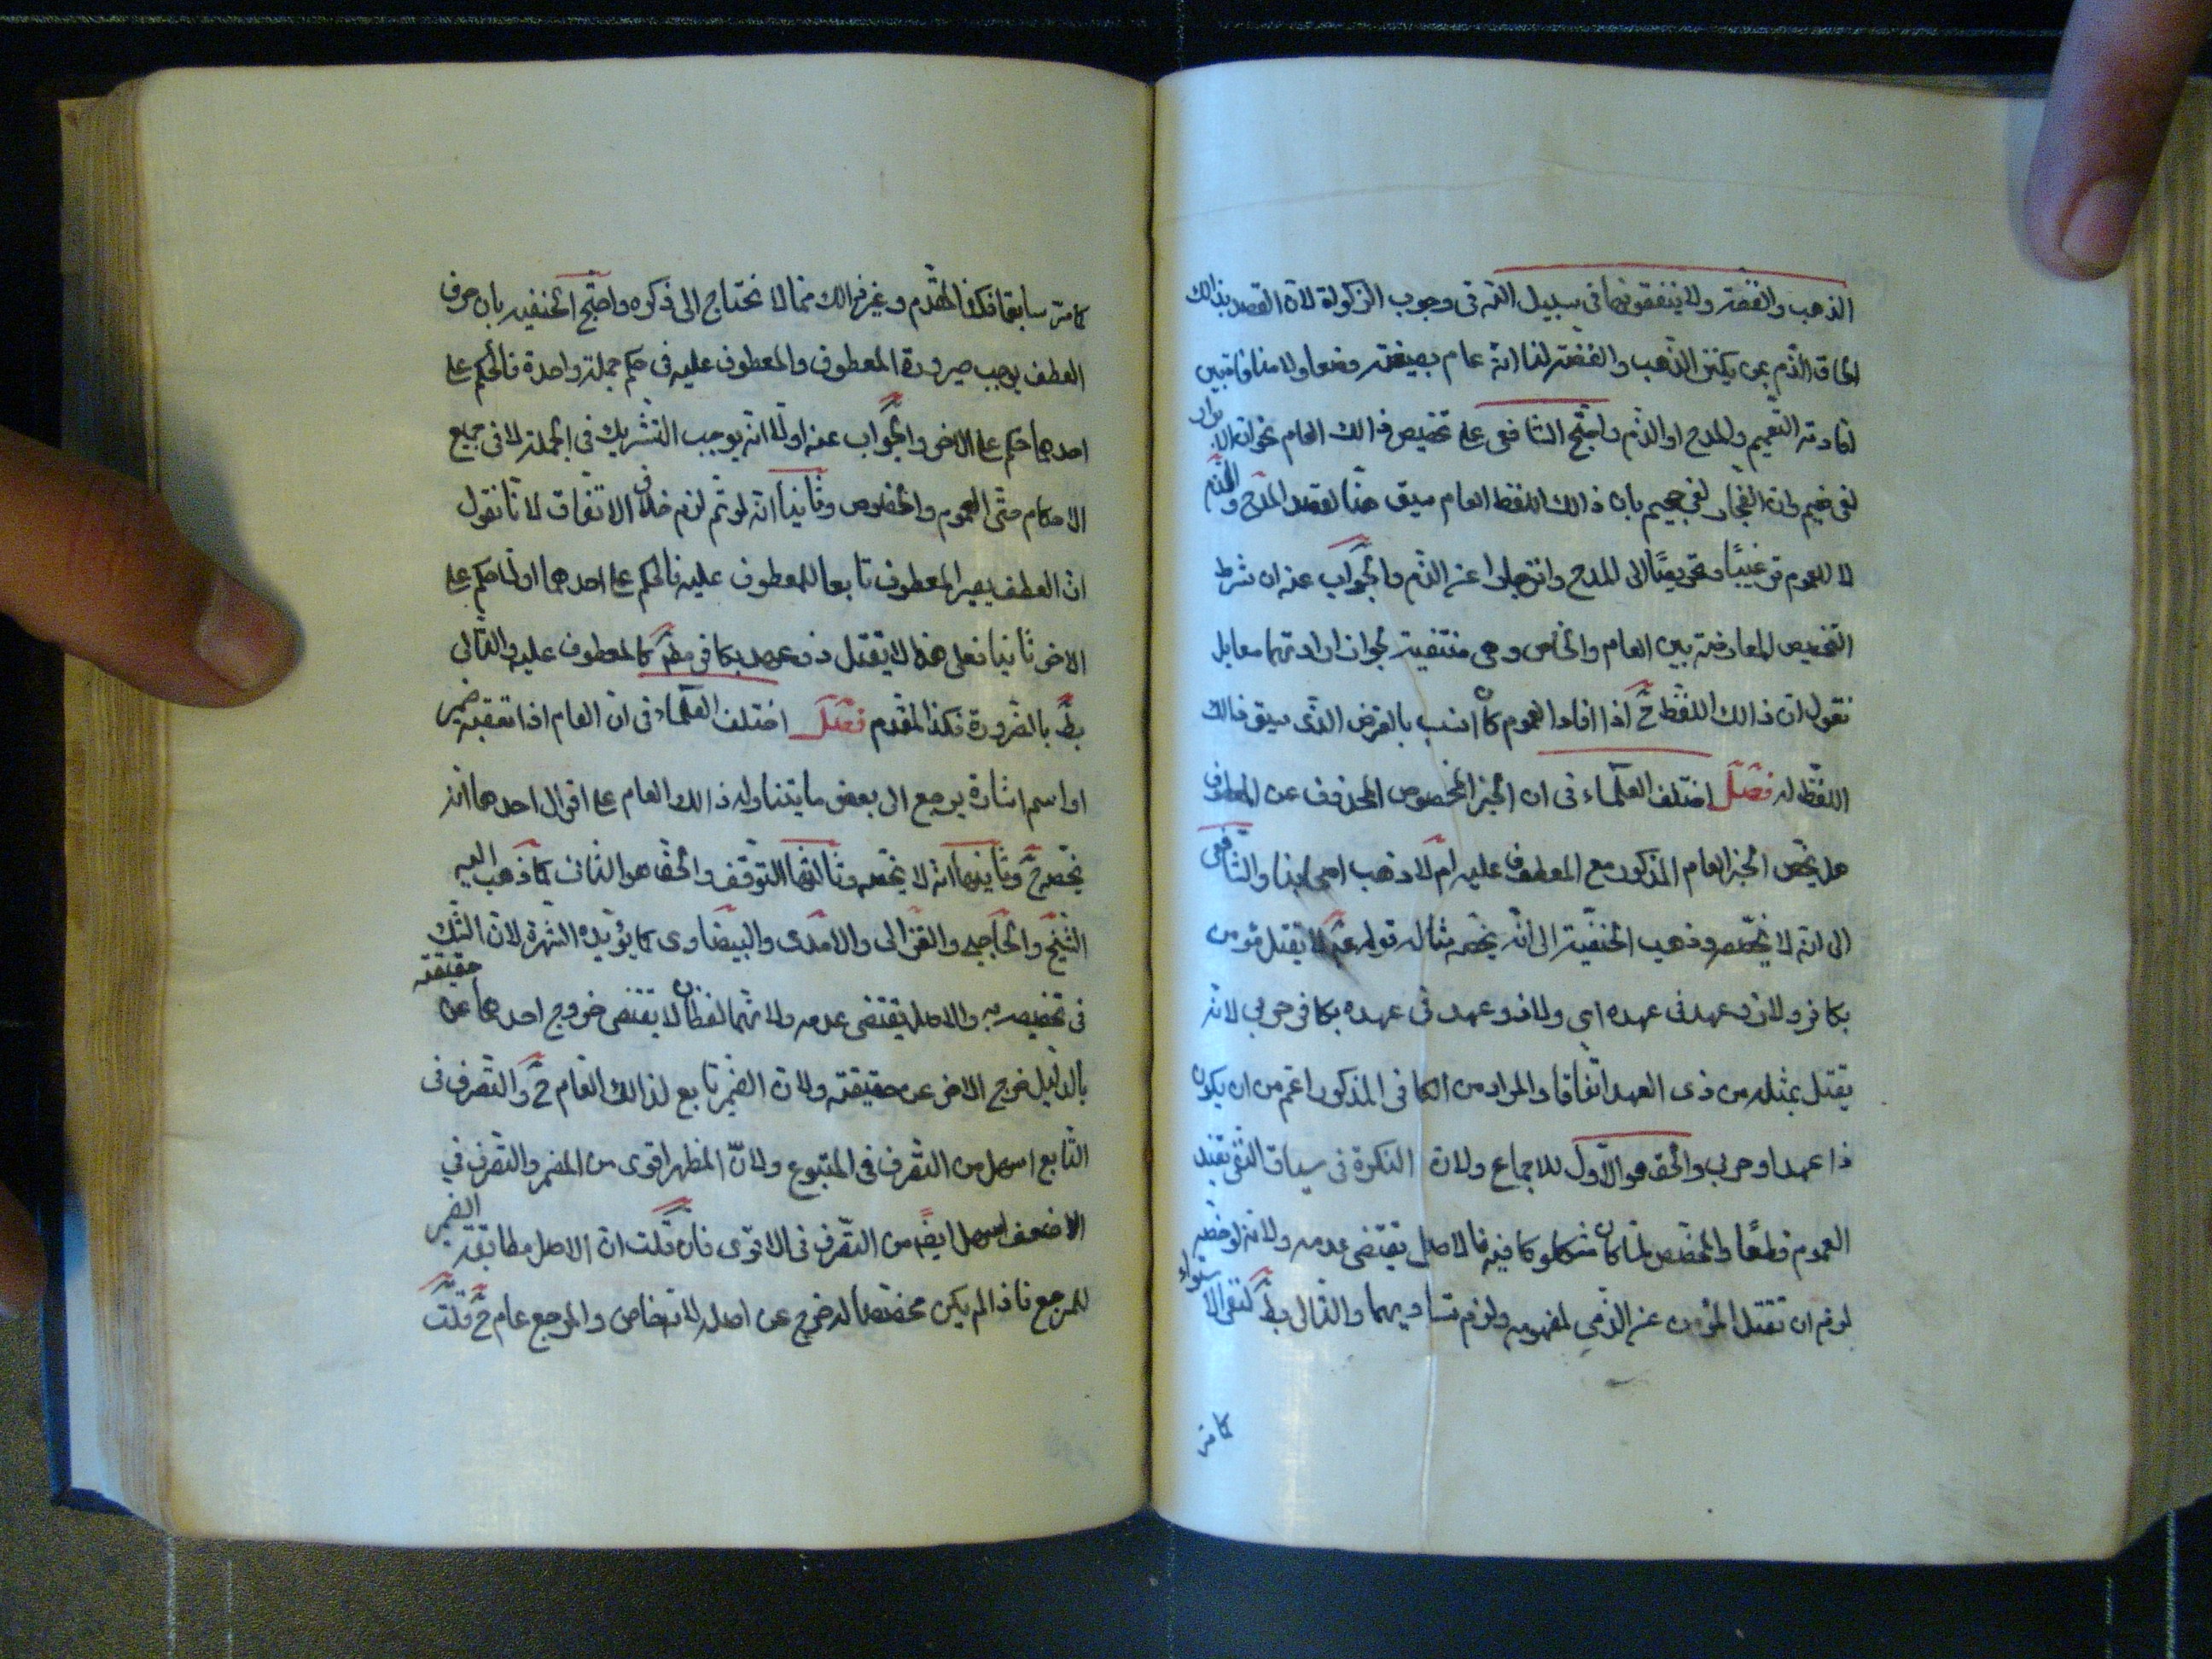 الذهب والفضة ولا ينفقونها في سبيل الله في وجوب الزكوة لان القصد بذالك
الحاق الذم بمن يكنز الذهب والفضة لنا انه عام بصيغته وضعا ولا منافاة بين
افادته التعميم والمدح او الذم واحتج الشافعي على تخصيص ذالك العام نحو ان الابرار
لفي نعيم وان الفجار لفي جحيم بان ذالك اللفظ العام سيق هنا لقصد المدح والذم
لا للعموم ترغيبا وتحريصا الى المدح وانزجارا عن الذم والجواب عنه ان شرط
التخصيص المعارضة بين العام والخاص وهي منتفية لجواز ارادتهما معا بل
نقول ان ذالك اللفظ ح اذا افاد العموم كان انسب بالغرض الذي سيق ذالك
اللفظ له فصل اختلف العلماء في ان الخبر المخصوص المحذوف عن المعطوف
هل يخص الخبر العام المذكور مع المعطوف عليه ام لا ذهب اصحابنا والشافعي
الى انه لا يخصص وذهب الحنفية الى انه يخصه مثاله قوله عم لا يقتل مؤمن
بكافر ولا ذو عهد في عهده اى ولا ذو عهد في عهده بكافر حربي لانه
يقتل بمثله من ذى العهد اتفاقا والمراد من الكافر المذكور اعم من ان يكون
ذا عهد او حربي والحق هو الاول للاجماع ولان النكرة في سياق النفي يفيد
العموم قطعا والمخصص لما كان مشكوكا فيه فالاصل يقتضى عدمه ولانه لو خصص
لزم ان تقتل المؤمن عن الذمي لمفهومه ولزم تساويهما والتالي بط لنفي الاستواء
كامر
كامر سابقا فكذا المقدم وغير ذالك مما لا نحتاج الى ذكره واحتج الحنفيه بان حرف
العطف يوجب صيرورة المعطوف والمعطوف عليه في حكم جملة واحدة فالحكم على
احدهما حكم على الاخر والجواب عنه اولا انه يوجب التشريك في الجملة لا في جميع
الاحكام حتى العموم والخصوص وثانيا انه لو تم لزم خلاف الاتفاق لانا نقول
ان العطف يصير المعطوف تابعا للمعطوف عليه فالحكم على احدهما اولا حكم على
الاخر ثانيا فعلى هذا لا يقتل ذو عهد بكافر مطم كالمعطوف عليه والتالي
بط بالضرورة فكذا المقدم فصل اختلف العلماء في ان العام اذا تعقبه ضمير
او اسم اشارة يرجع الى بعض ما يتناوله ذالك العام على اقوال احدها انه
يخصه ح وثانيها انه لا يخصه وثالثها التوقف والحق هو الثاني كما ذهب اليه
الشيخ والحاجبي والغزالى والامدى والبيضاوى كما يؤيده الشهرة لان الشك
في تخصيصه والاصل يقتضى عدمه ولانهما لفظان لا يقتضى خروج احدهما عن حقيقته
بالدليل خروج الاخر عن حقيقته ولان الضمير تابع لذالك العام ح والتصرف في
التابع اسهل من التصرف في المتبوع ولان المظهر اقوى من المضمر والتصرف في
الاضعف اسهل ايضا من التصرف في الاقوى فان قلت ان الاصل مطابقة الضمير
للمرجع فاذا لم يكن مختصا له خرج عن اصله لانه خاص والمرجع عام ح قلت